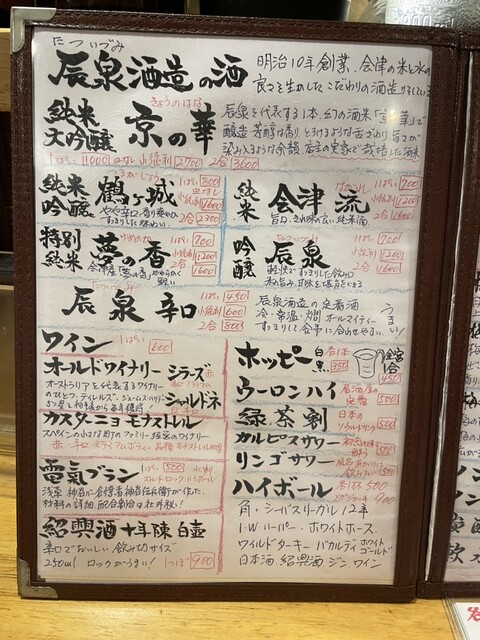 たついづみ
辰泉酒造の酒
明治10年創業、会津の米と水の
良さを生かしたこだわりの酒造りをしている
純米
大吟醸
きょうのはな
京の華
辰泉を代表する1本、幻の酒米「京の華」で
醸造 芳醇な香り とろけるような舌ざわり、旨さが
染み入るような余韻。
1ぱい 1000 小徳利 2700 2合 3600
純米
吟醸
つるがじょう
鶴ヶ城
やや辛口、香り爽やか
すっきりした味わい
1ぱい 800
小徳利 1600
2合 2300
純米
会津 流
旨口、きれ味の広い純米酒
1ぱい 700
小徳利 1200
2合 1600
特別
純米
夢の香
会津産「夢の香」
1ぱい 700
小徳利 1200
2合 1600
吟醸
たついづみ
辰泉
軽快ですっきりした飲口
米の旨み、甘味を堪能できる
1ぱい 700
小徳利 1200
2合 1600
たついづみ
辰泉 辛口
1ぱい 450
小徳利 600
2合 800
辰泉酒造の定番酒
冷・常温・燗 オールマイティー
すっきりして食事に合わせやすい。
うまい!
ワイン 1ぱい 600
オールドワイナリー シラーズ 赤
オーストラリアを代表するワイナリー
のひとつ
シャルドネ 白
カスターニョ モナストレル
スペインの
電氣ブラン 1ぱい 500 水割
ストレート ロック ハイボール
浅草 神谷バー創業者神谷伝兵衛が作った、
材料の詳細、配合割合は社外秘!
紹興酒 十年陳 白壺
辛口でおいしい 飲み切りサイズ
250ml ロックがうまい! 1つぼ 900
ホッピー 白 黒 350
ウーロンハイ 500
緑茶割 500
カルピスサワー 500
リンゴサワー 500
ハイボール 500
900
角・シーバスリーガル12年
I.W.ハーパー・ホワイトホース
ワイルドターキー バカルディ ホワイト ゴールド
日本酒 紹興酒 ジン ワイン